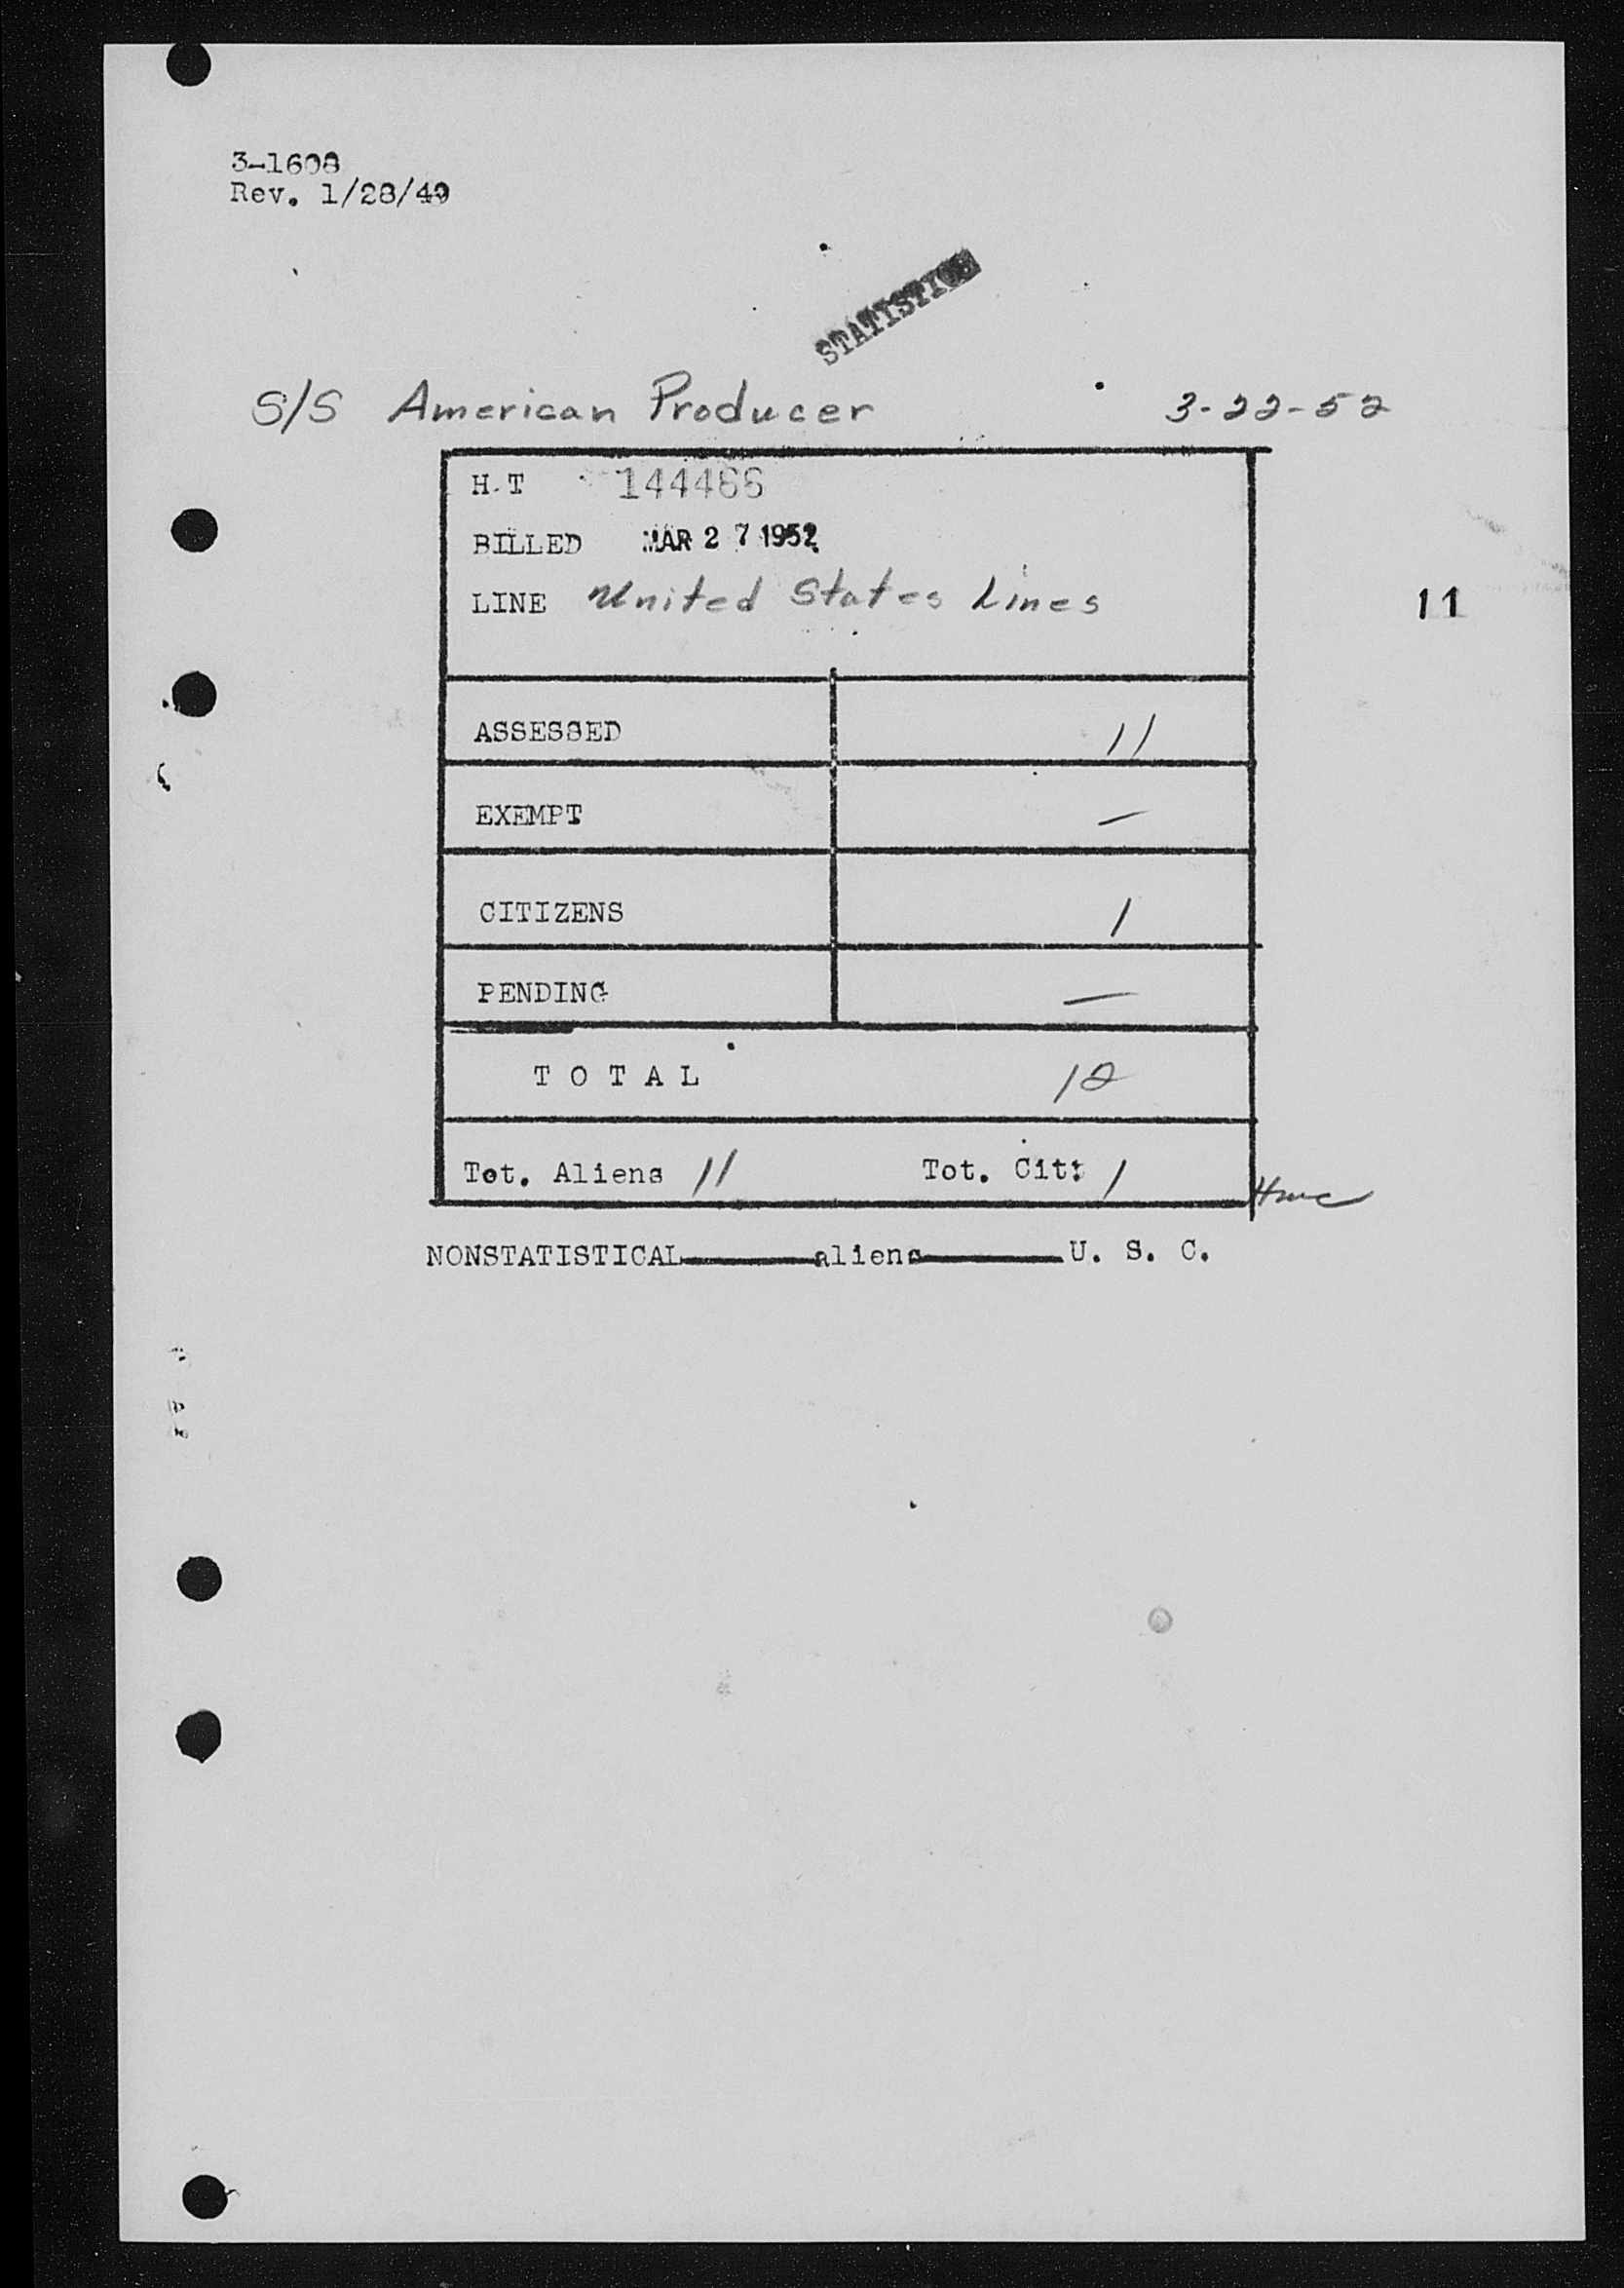 3-1608
Rev. 1/28/49
STATISTICS
S/S American Producer 3-22-52
H.T 144466
BILLED MAR 27 1952
LINE United States Lines
11
ASSESSED 11
EXEMPT —
CITIZENS 1
PENDING —
TOTAL 12
Tot. Aliens 11 Tot. Cit: 1
Hmc
NONSTATISTICAL aliens U. S. C.